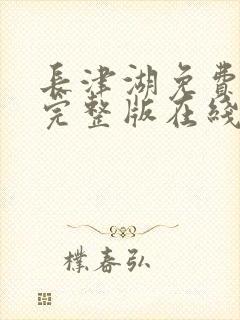 長津湖免費
完整版在綫
樸春弘